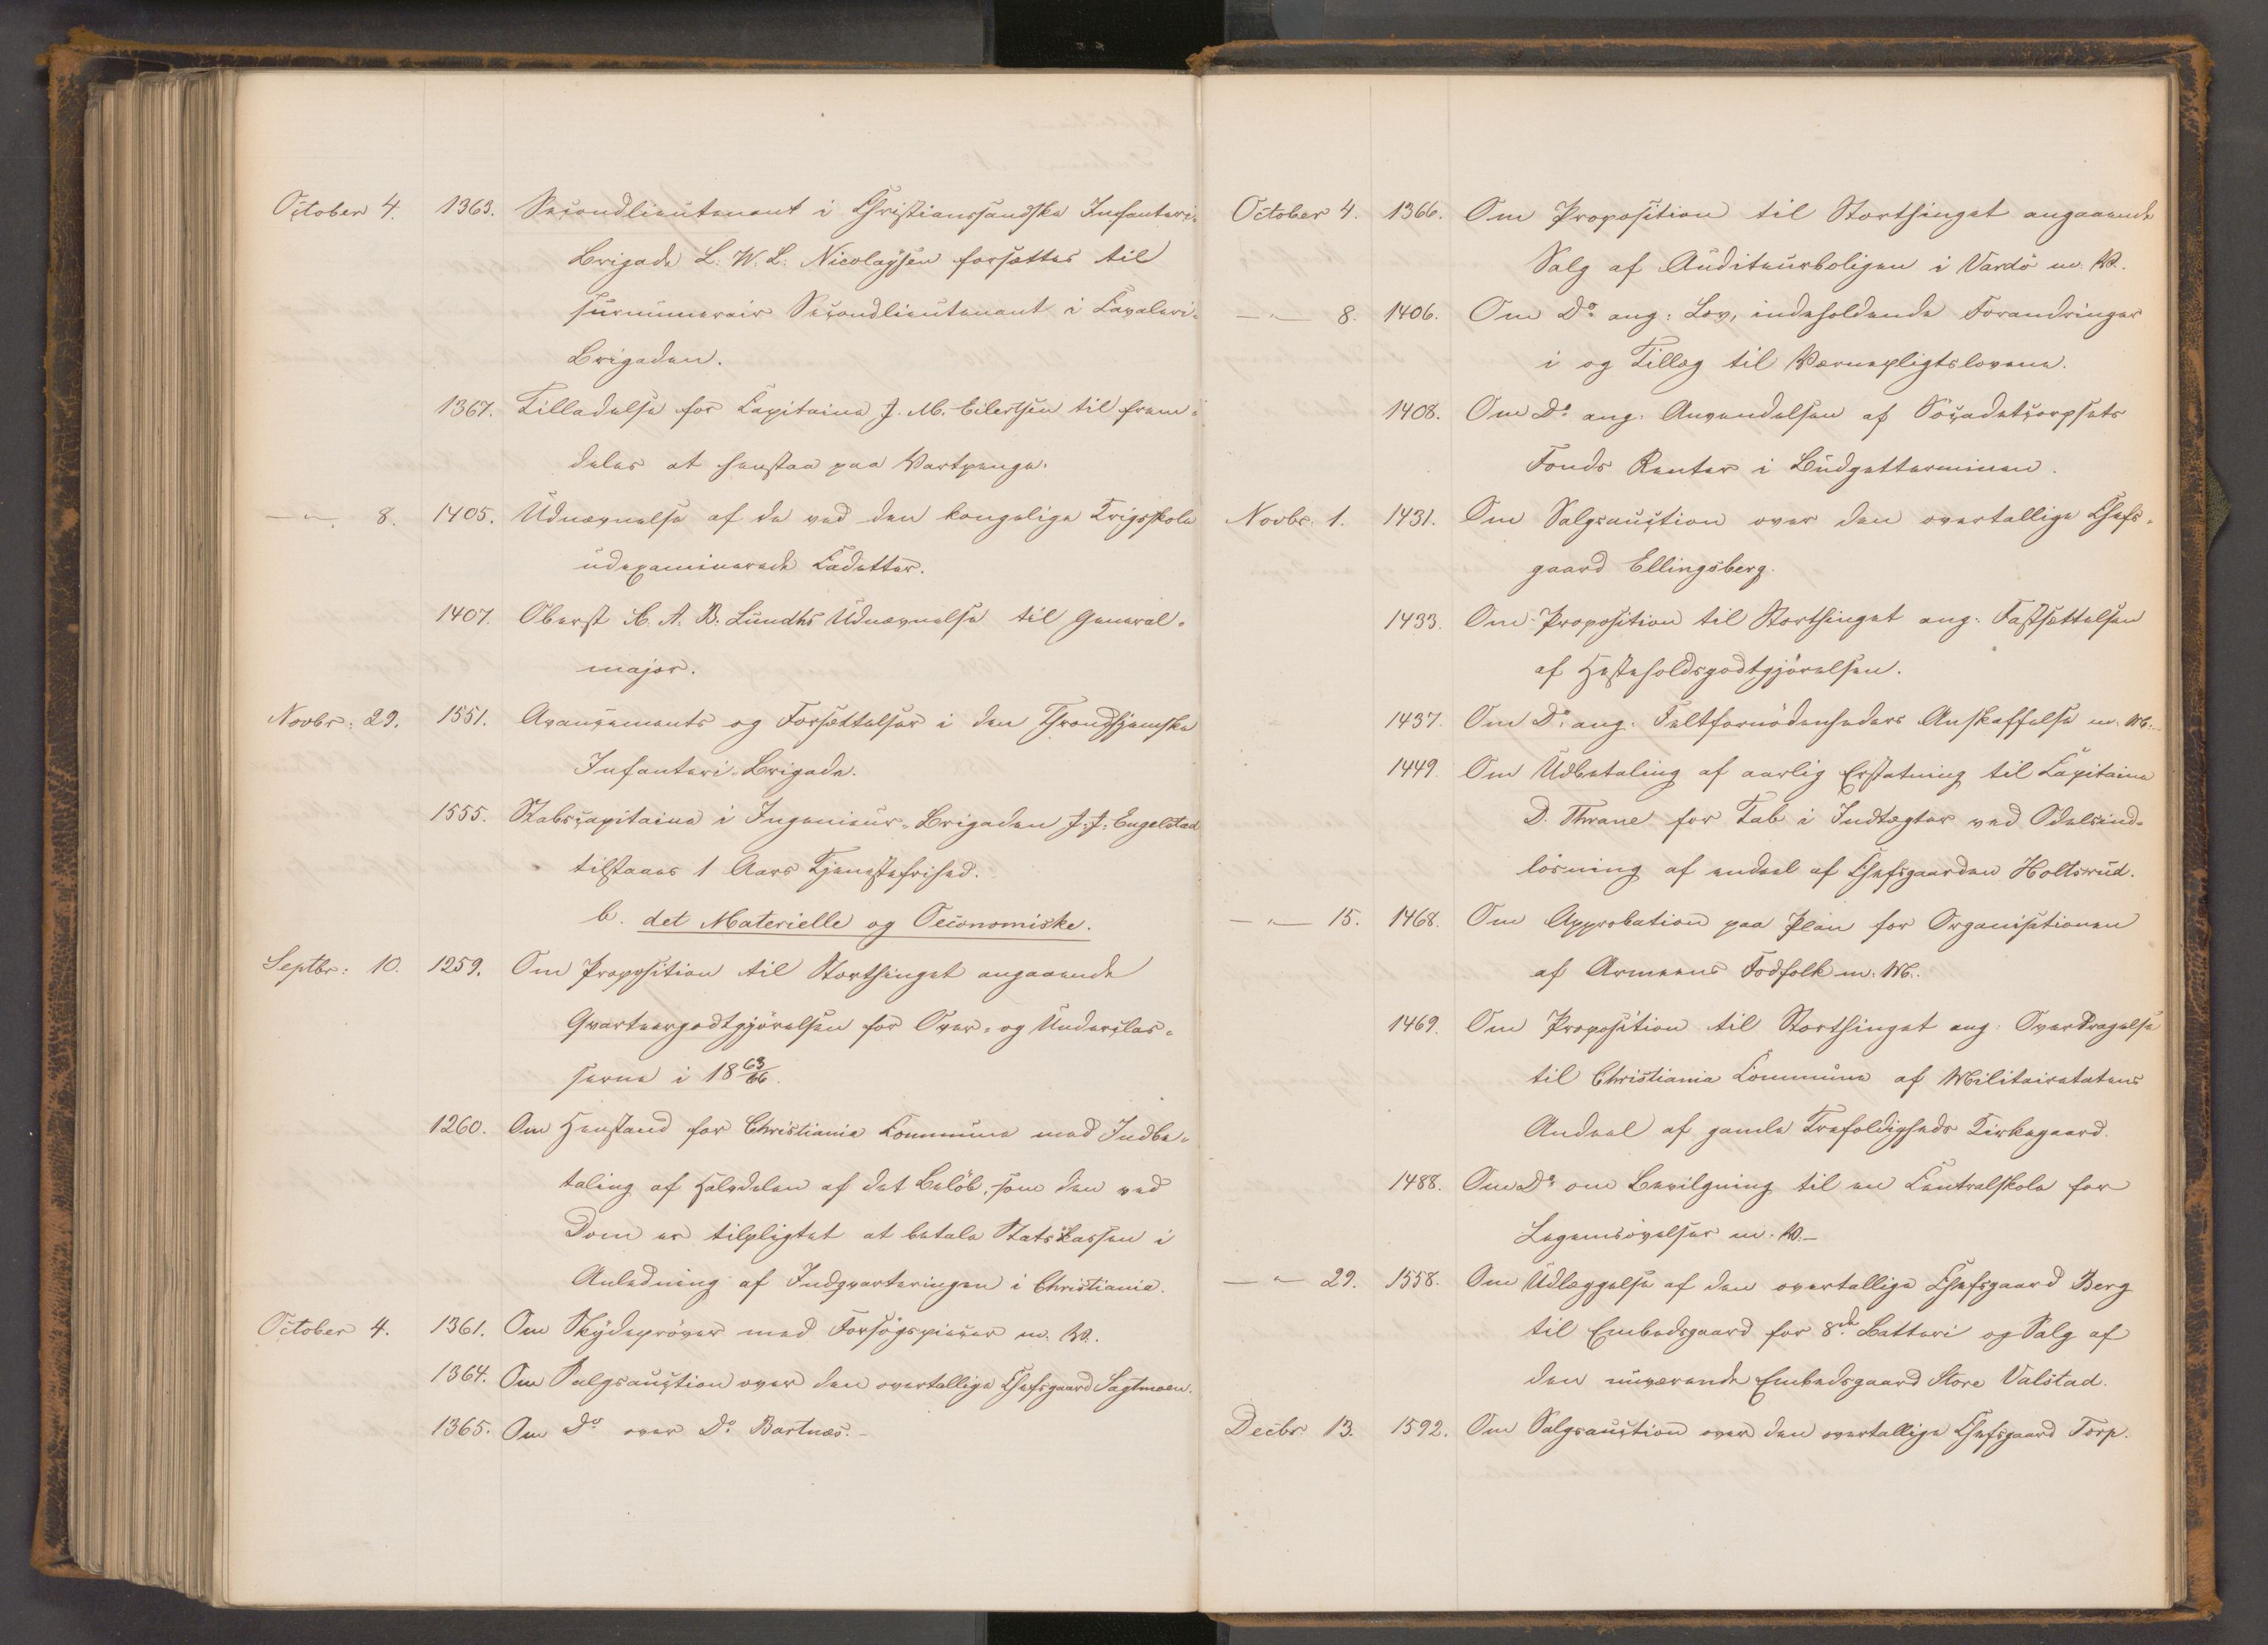 October 4. 1363. Secondlieutenant i Christianssandske Infanteri-
Brigade L. W. L. Nicolaysen forsættes til
surnumerair Secondlieutenant i Cavaleri-
Brigaden.
1367. Tilladelse for Capitaine J. M. Eilertsen til frem-
deles at henstaa paa Vartpenge.
—"— 8. 1405. Udnævnelse af de ved den kongelige Krigsskole
udexaminerede Cadetter.
1407. Oberst A. A. B. Lundhs Udnævnelse til General-
major.
Novbr: 29. 1551. Avancements og Forsættelser i den Throndhjemske
Infanteri-Brigade.
1555. Stabscapitaine i Ingenieur-Brigaden J. J. Engelstad
tilstaaes 1 Aars Tjenestefrihed.
b. det Materielle og Oeconomiske.
Septbr: 10. 1259. Om Proposition til Storthinget angaaende
Qvarteergodtgjörelsen for Over- og Underclas-
serne i 18 63/66.
1260. Om Henstand for Christiania Commune med Indbe-
taling af Halvdelen af det Belöb, som den ved
Dom er tilpligtet at betale Statskassen i
Anledning af Indqvarteringen i Christiania.
October 4. 1361. Om Skydepröver med Forsögspiecer m. V.
1364. Om Salgsauction over den overtallige Chefsgaard Sagtmoen.
1365. Om Do over Do Bartnæs.
October 4. 1366. Om Proposition til Storthinget angaaende
Salg af Auditeurboligen i Vardö m. V.
—"— 8. 1406. Om Do ang: Lov, indeholdende Forandringer
i og Tillæg til Værnepligtslovene.
1408. Om Do ang. Anvendelsen af Söcadetcorpsets
Fonds Renter i Budgetterminen.
Novbr. 1. 1431. Om Salgsauction over den overtallige Chefs-
gaard Ellingsberg.
1433. Om Proposition til Storthinget ang. Fastsættelsen
af Hesteholdsgodtgjörelsen.
1437. Om Do ang. Feltfornödenheders Anskaffelse m. M.
1449. Om Udbetaling af aarlig Erstatning til Capitaine
D. Thrane for Tab i Indtægter ved Odelsind-
lösning af endeel af Chefsgaarden Holtsrud.
—"— 15. 1468. Om Approbation paa Plan for Organisationen
af Armeens Fodfolk m. M.
1469. Om Proposition til Storthinget ang. Overdragelse
til Christiania Commune af Militairetatens
Andeel af gamle Trefoldigheds Kirkegaard.
1488. Om Do om Bevilgning til en Centralskole for
Legemsövelser m. V.
—"— 29. 1558. Om Udlæggelse af den overtallige Chefsgaard Berg
til Embedsgaard for 8de Batteri og Salg af
den nuværende Embedsgaard Store Valstad.
Decbr 13. 1592. Om Salgsauction over den overtallige Chefsgaard Torp.